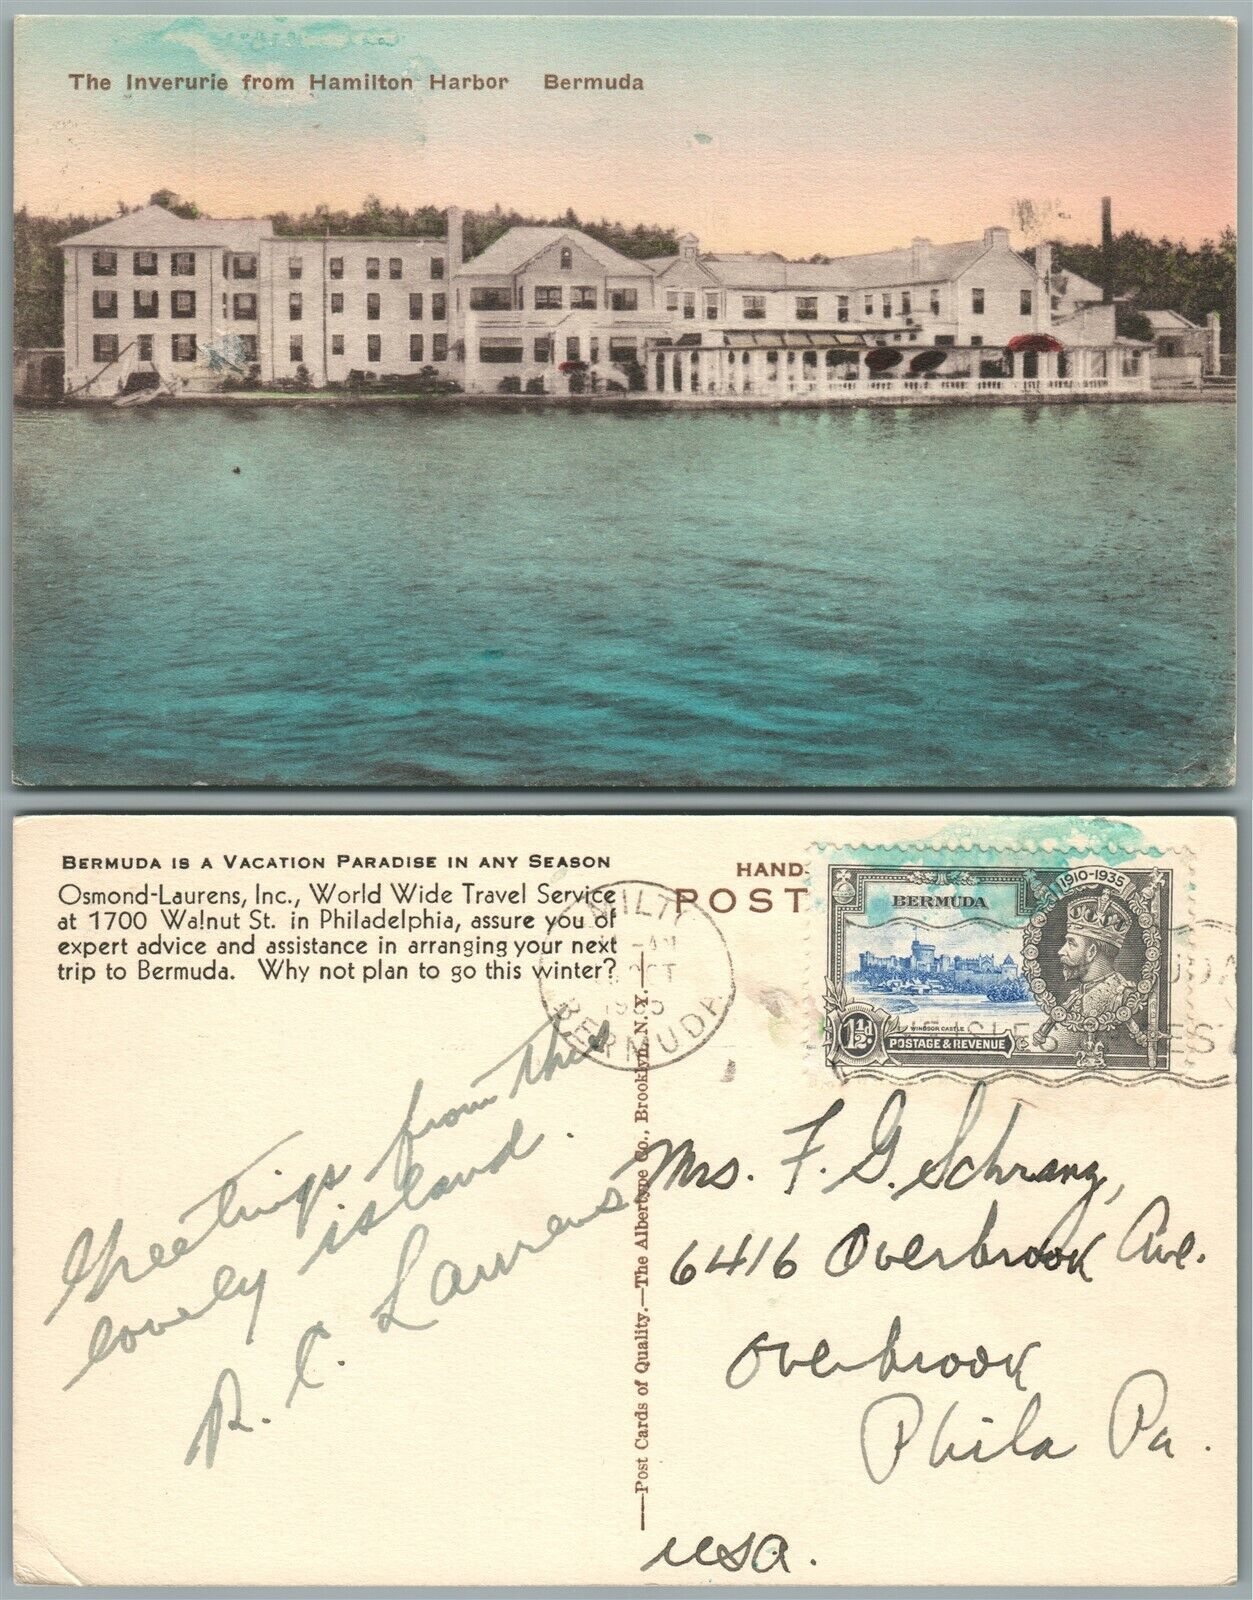 The Inverurie from Hamilton Harbor Bermuda
BERMUDA IS A VACATION PARADISE IN ANY SEASON
Osmond-Laurens, Inc., World Wide Travel Service
at 1700 Walnut St. in Philadelphia, assure you of
expert advice and assistance in arranging your next
trip to Bermuda. Why not plan to go this winter?
HAND-
POST
OCT
BERMUDA
1910-1935
BERMUDA
WINDSOR CASTLE
1½d
POSTAGE & REVENUE
Greetings from this
lovely island.
R. C. Laurens
—Post Cards of Quality.—The Albertype Co., Brooklyn, N. Y.—
Mrs. F. G. Schranz,
6416 Overbrook Ave.
Overbrook
Phila Pa.
USA.